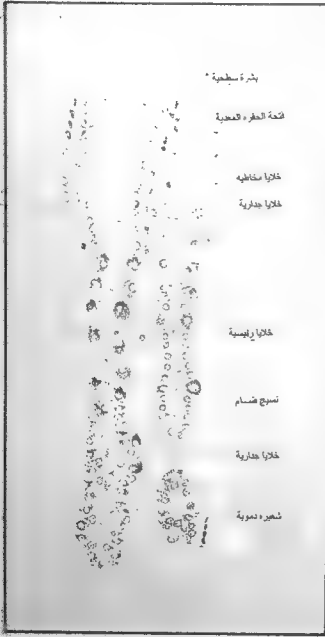 بشرة سطحية
فتحة الحفره المعدية
خلايا مخاطيه
خلايا جدارية
خلايا رئيسية
نسيج ضسام
خلايا جدارية
شعيره دموية